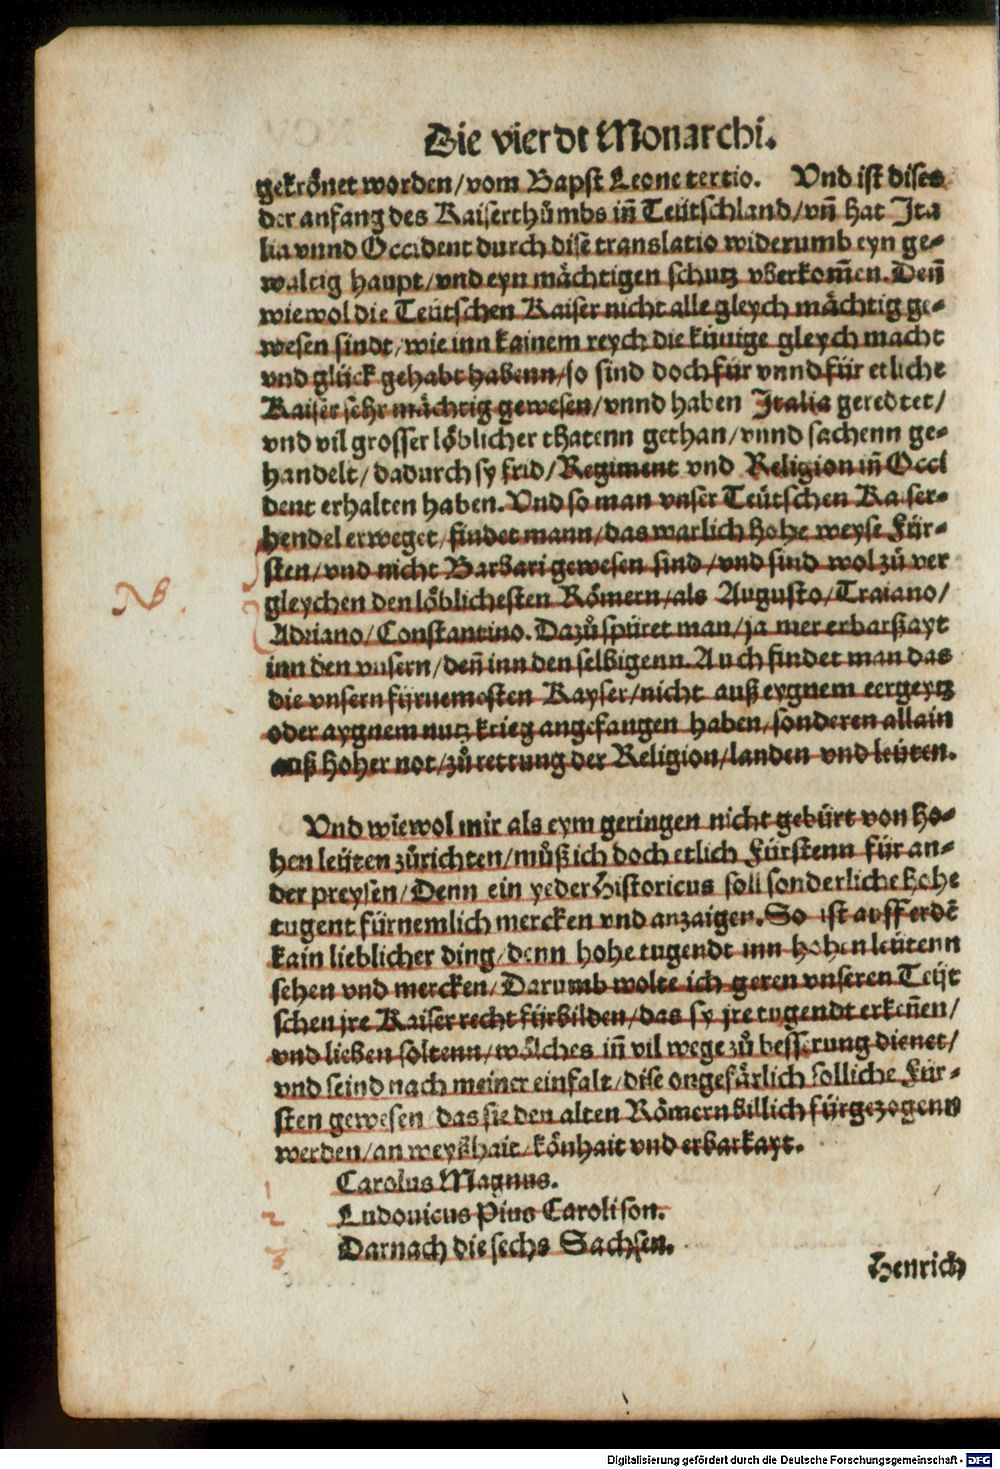 Die vierdt Monarchi.
gekrönet worden/vom Bapst Leone tertio. Vnd ist dises
der anfang des Kaiserthůmbs iñ Teütschland/vñ hat Jta
lia vnnd Occident durch dise translatio widerumb eyn ge-
waltig haupt/vnd eyn mächtigen schutz vberkom̃en. Deñ
wiewol die Teütschen Kaiser nicht alle gleych mächtig ge-
wesen sindt/wie inn kainem reych die künige gleych macht
vnd glück gehabt habenn/so sind doch für vnnd für etliche
Kaiser sehr mächtig gewesen/vnnd haben Jtalia geredtet/
vnd vil grosser löblicher thatenn gethan/vnnd sachenn ge-
handelt/dadurch sy frid/Regiment vnd Religion iñ Occi
dent erhalten haben. Vnd so man vnser Teütschen Kaiser-
hendel erweget/findet mann/das warlich hohe weyse Für-
sten/vnd nicht Barbari gewesen sind/vnd sind wol zů ver
gleychen den löblichesten Römern/als Augusto/Traiano/
NB.
Adriano/Constantino. Dazů spüret man/ja mer erbarkayt
inn den vnsern/deñ inn den selbigenn. Auch findet man das
die vnsern fürnemesten Kayser/nicht auß eygnem eergeytz
oder aygnem nutz krieg angefangen haben/sonderen allain
auß hoher not/zů rettung der Religion/landen vnd leüten.
Vnd wiewol mir als eym geringen nicht gebürt von ho-
hen leüten zůrichten/můß ich doch etlich Fürstenn für an-
der preysen/Denn ein yeder Historicus soll sonderliche hohe
tugent fürnemlich mercken vnd anzaigen. So ist auff erdẽ
kain lieblicher ding/denn hohe tugendt inn hohen leütenn
sehen vnd mercken/Darumb wolte ich geren vnseren Teüt
schen jre Kaiser recht fürbilden/das sy jre tugendt erkeñen/
vnd lieben soltenn/wölches iñ vil wege zů besserung dienet/
vnd seind nach meiner einfalt/dise ongefärlich solliche Für-
sten gewesen das sie den alten Römern billich fürgezogenn
werden/an weyßhait/könhait vnd erbarkayt.
1 Carolus Magnus.
2 Ludouicus Pius Caroli son.
3 Darnach die sechs Sachsen.
Henrich
Digitalisierung gefördert durch die Deutsche Forschungsgemeinschaft - DFG